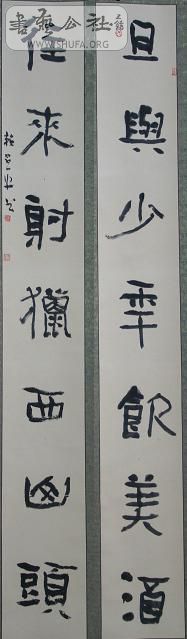 且與少年飲美酒
往來射獵西山頭
書藝公社
WWW.SHUFA.ORG